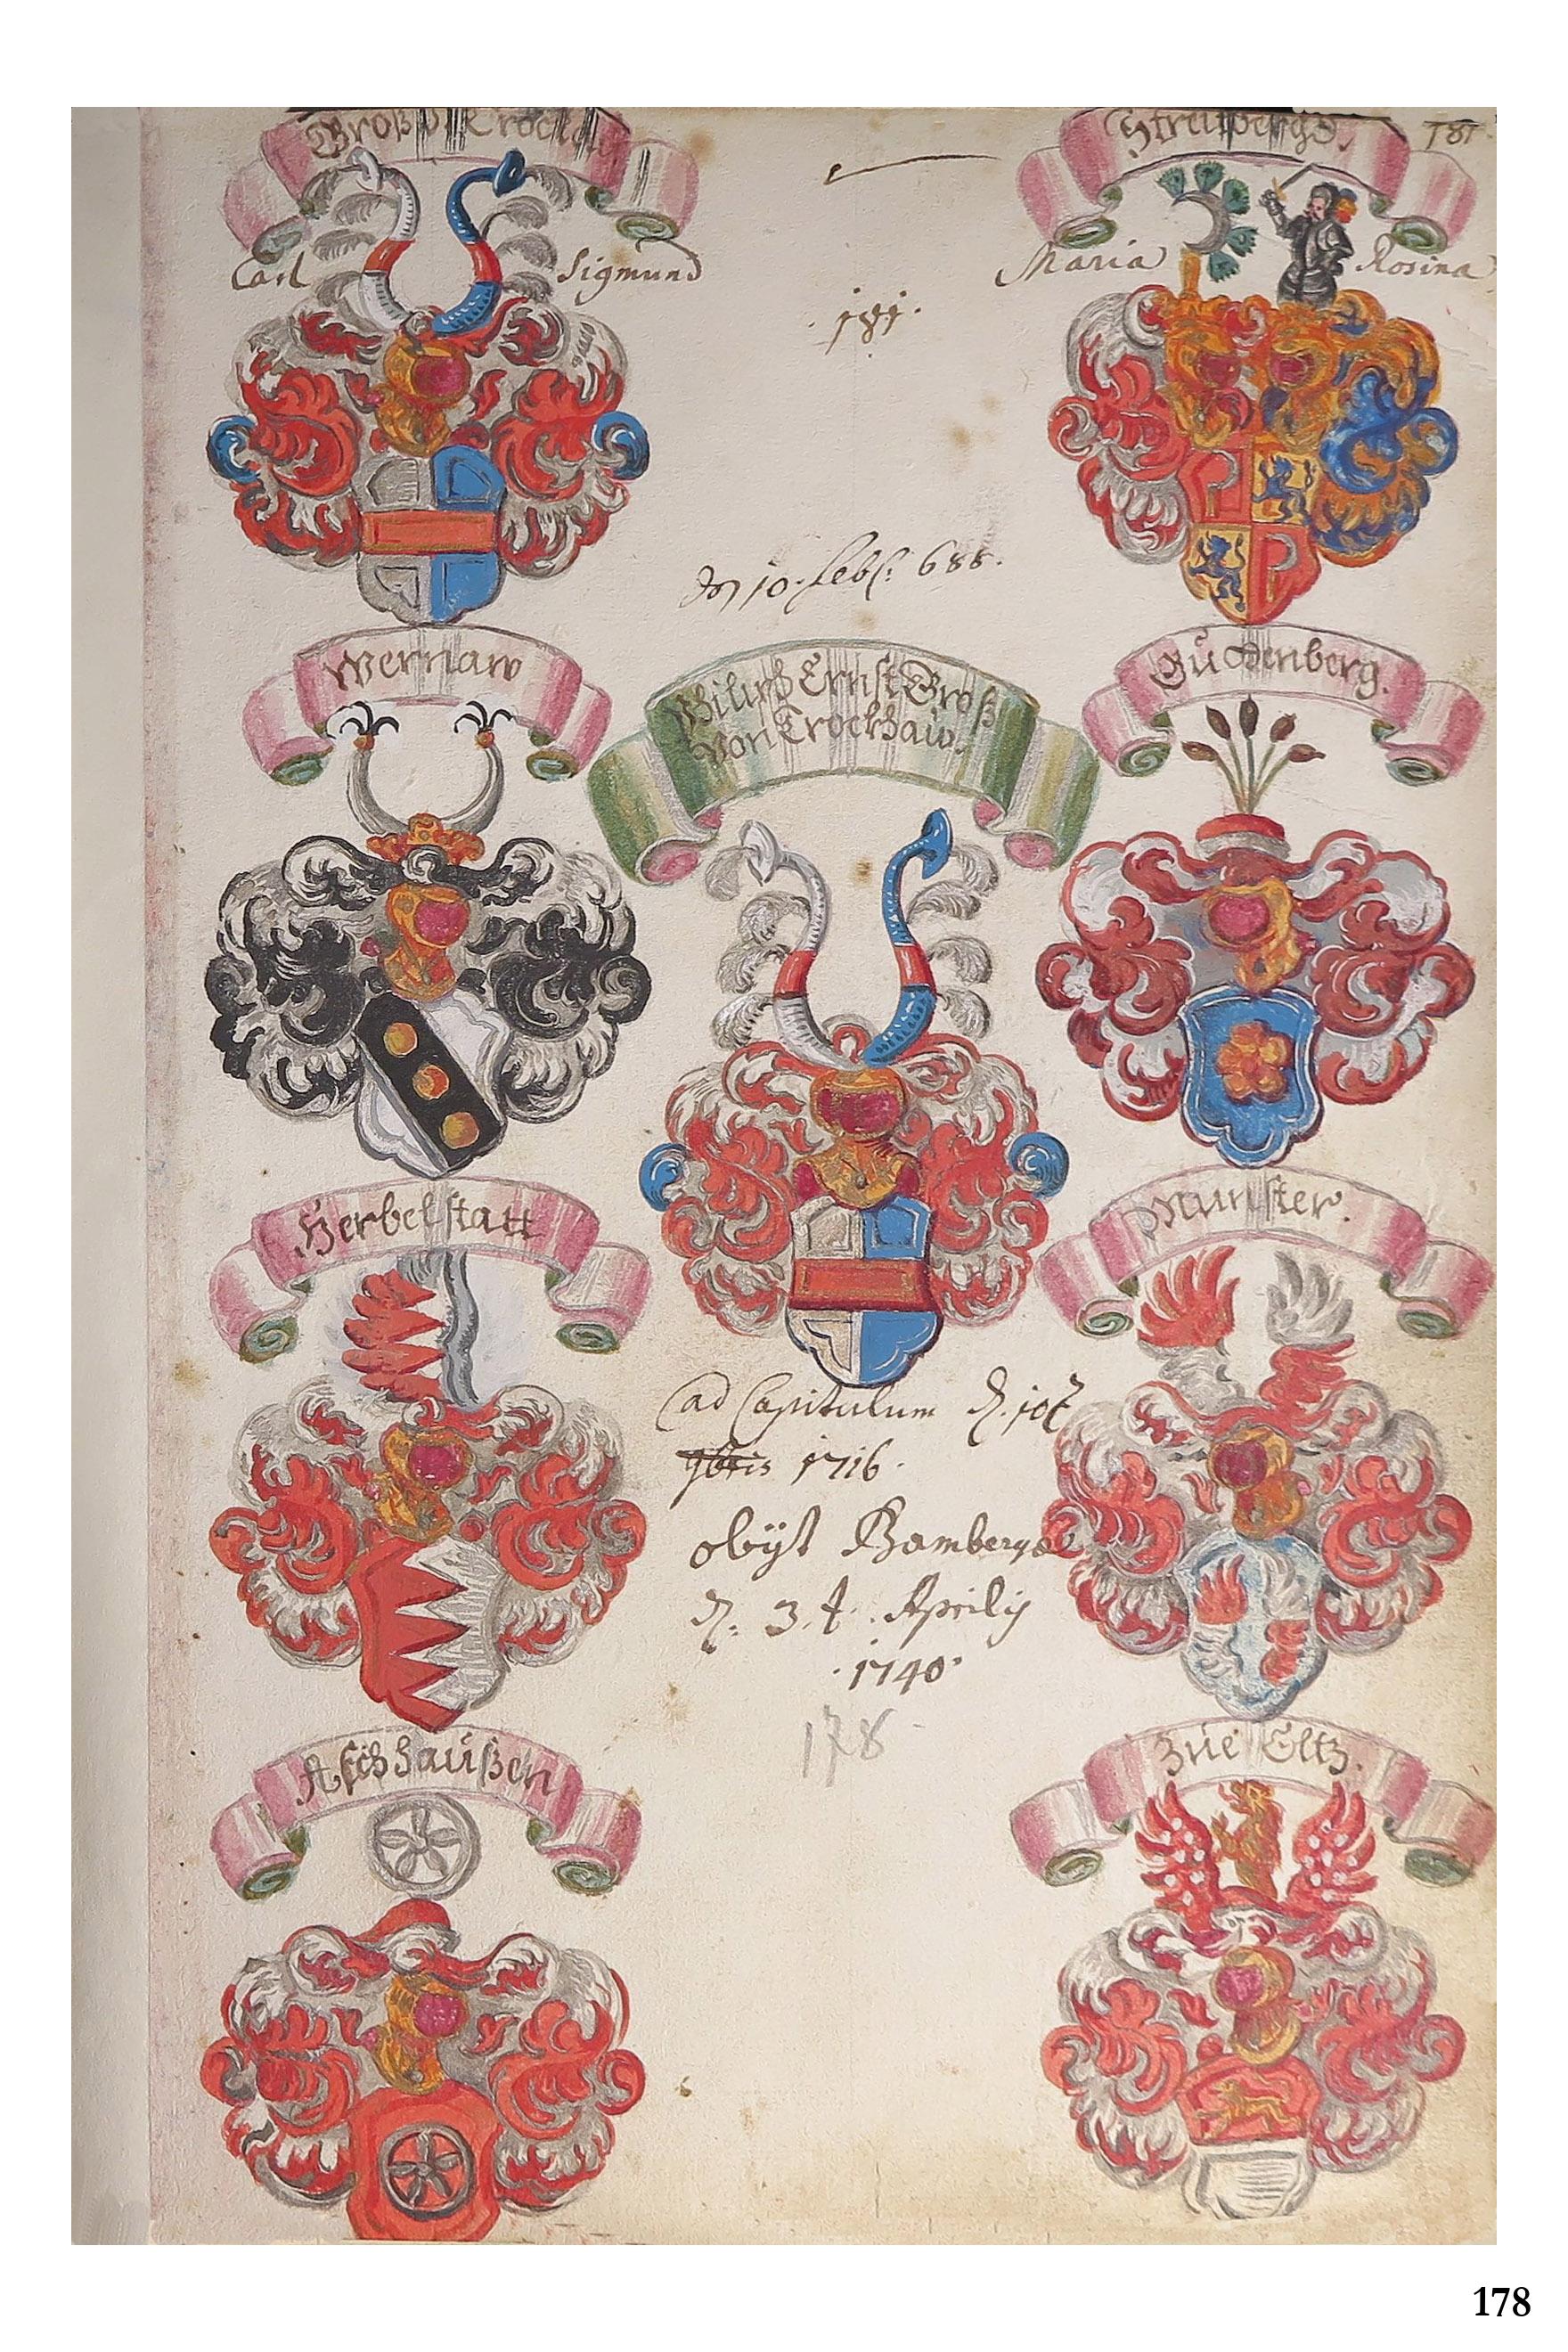 Groß v: Trockau
Streitbergs.
181.
Carl Sigmund
Maria Rosina
.181.
10. Feb: 688.
Wernaw
Guttenberg.
Ernst Groß
von Trockhaw.
Herbelstatt
Munster.
ad Capitulum d. 10t
9bris 1716.
obijt Bambergae
d. 3. t. Aprilis
.1740.
178
Aschhaußen
Zue Eltz.
178